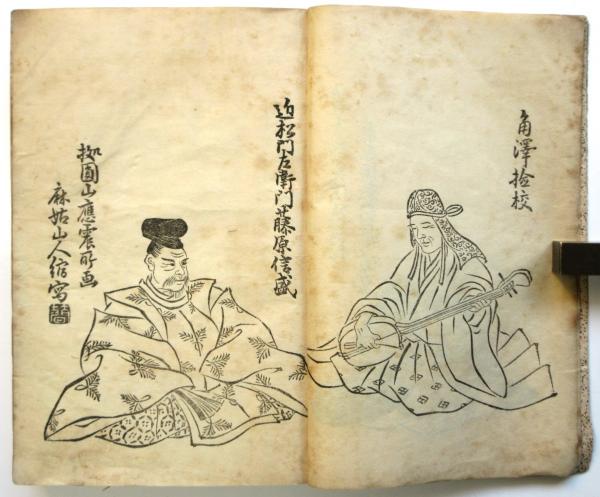 角澤撿校
近松門左衛門藤原信盛
拠圓山應震所画
麻姑山人縮寫